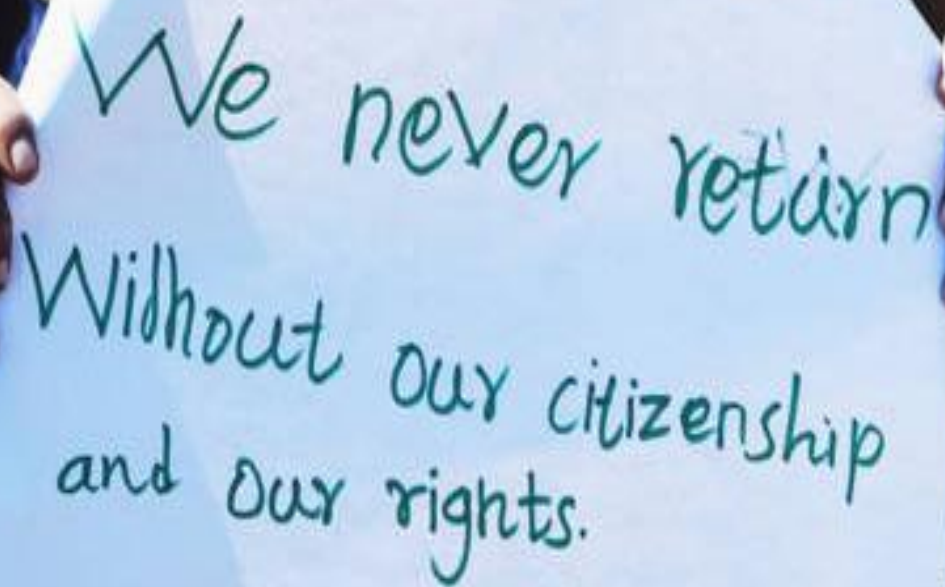 We never return
Without our citizenship
and our rights.